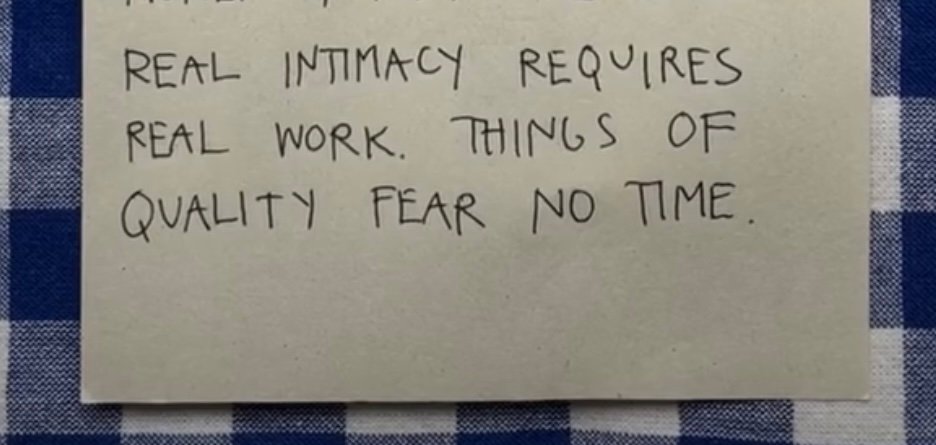 REAL INTIMACY REQUIRES
REAL WORK. THINGS OF
QUALITY FEAR NO TIME.